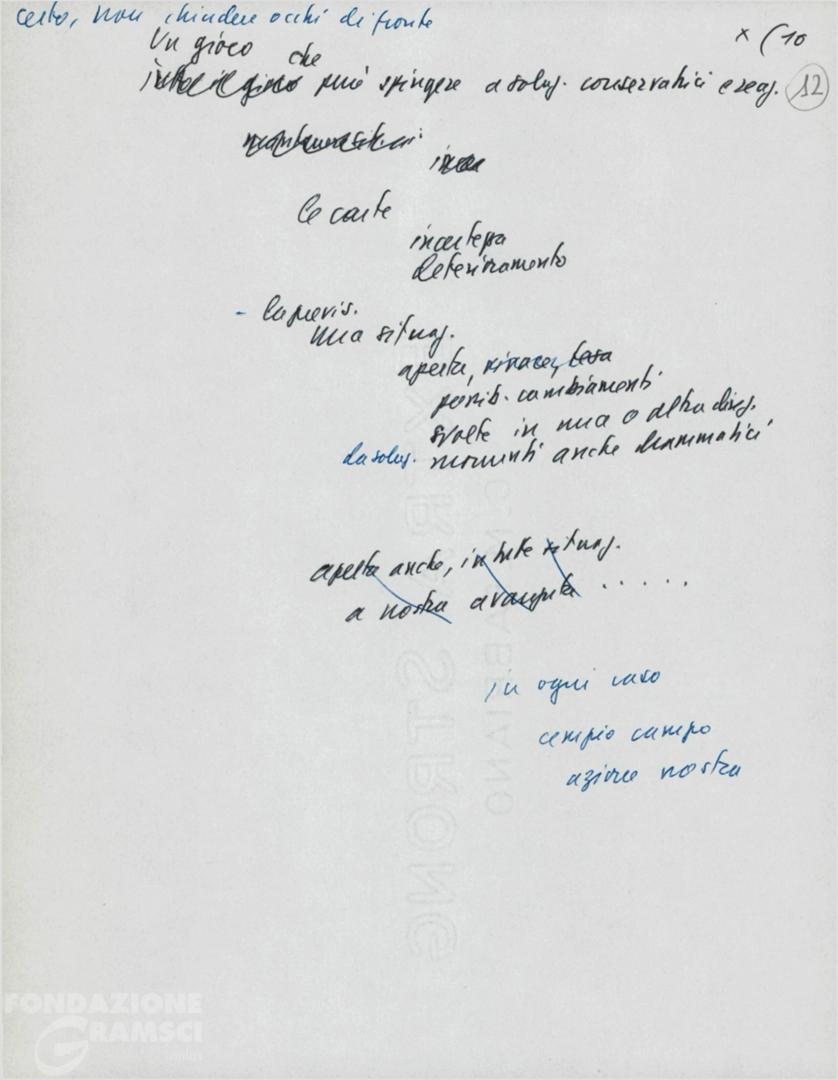 certo, non chiudere occhi di fronte
x (10
Un gioco che
può spingere a soluz. conservatrici e reaz.
12
le carte
incertezza
deterioramento
- la previs.
una situaz.
aperta,
possib. cambiamenti
svolte in una o altra direz.
da soluz. momenti anche drammatici
aperta anche, in tale situaz.
a nostra avanzata .....
in ogni caso
ampio campo
azione nostra
EXTRA STRONG
FABRIANO
FONDAZIONE
GRAMSCI
onlus